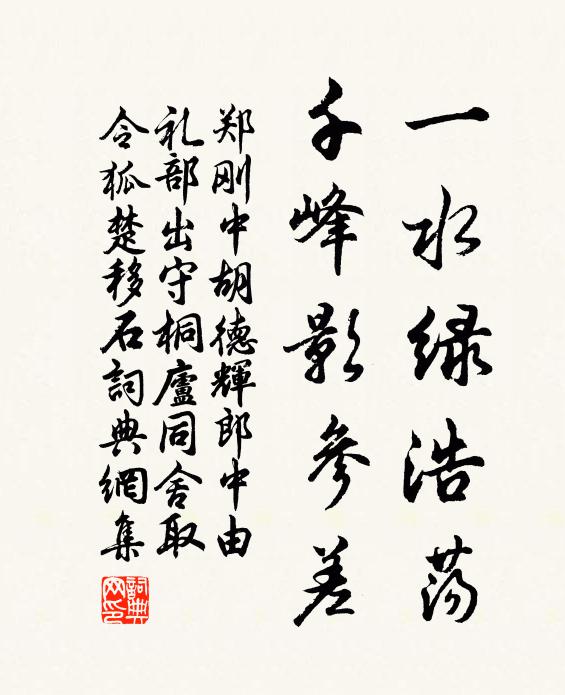 一水绿浩荡
千峰影参差
郑刚中胡德輝郎中由
礼部出守桐廬同舍取
令狐楚移石詞典網集
詞典网印